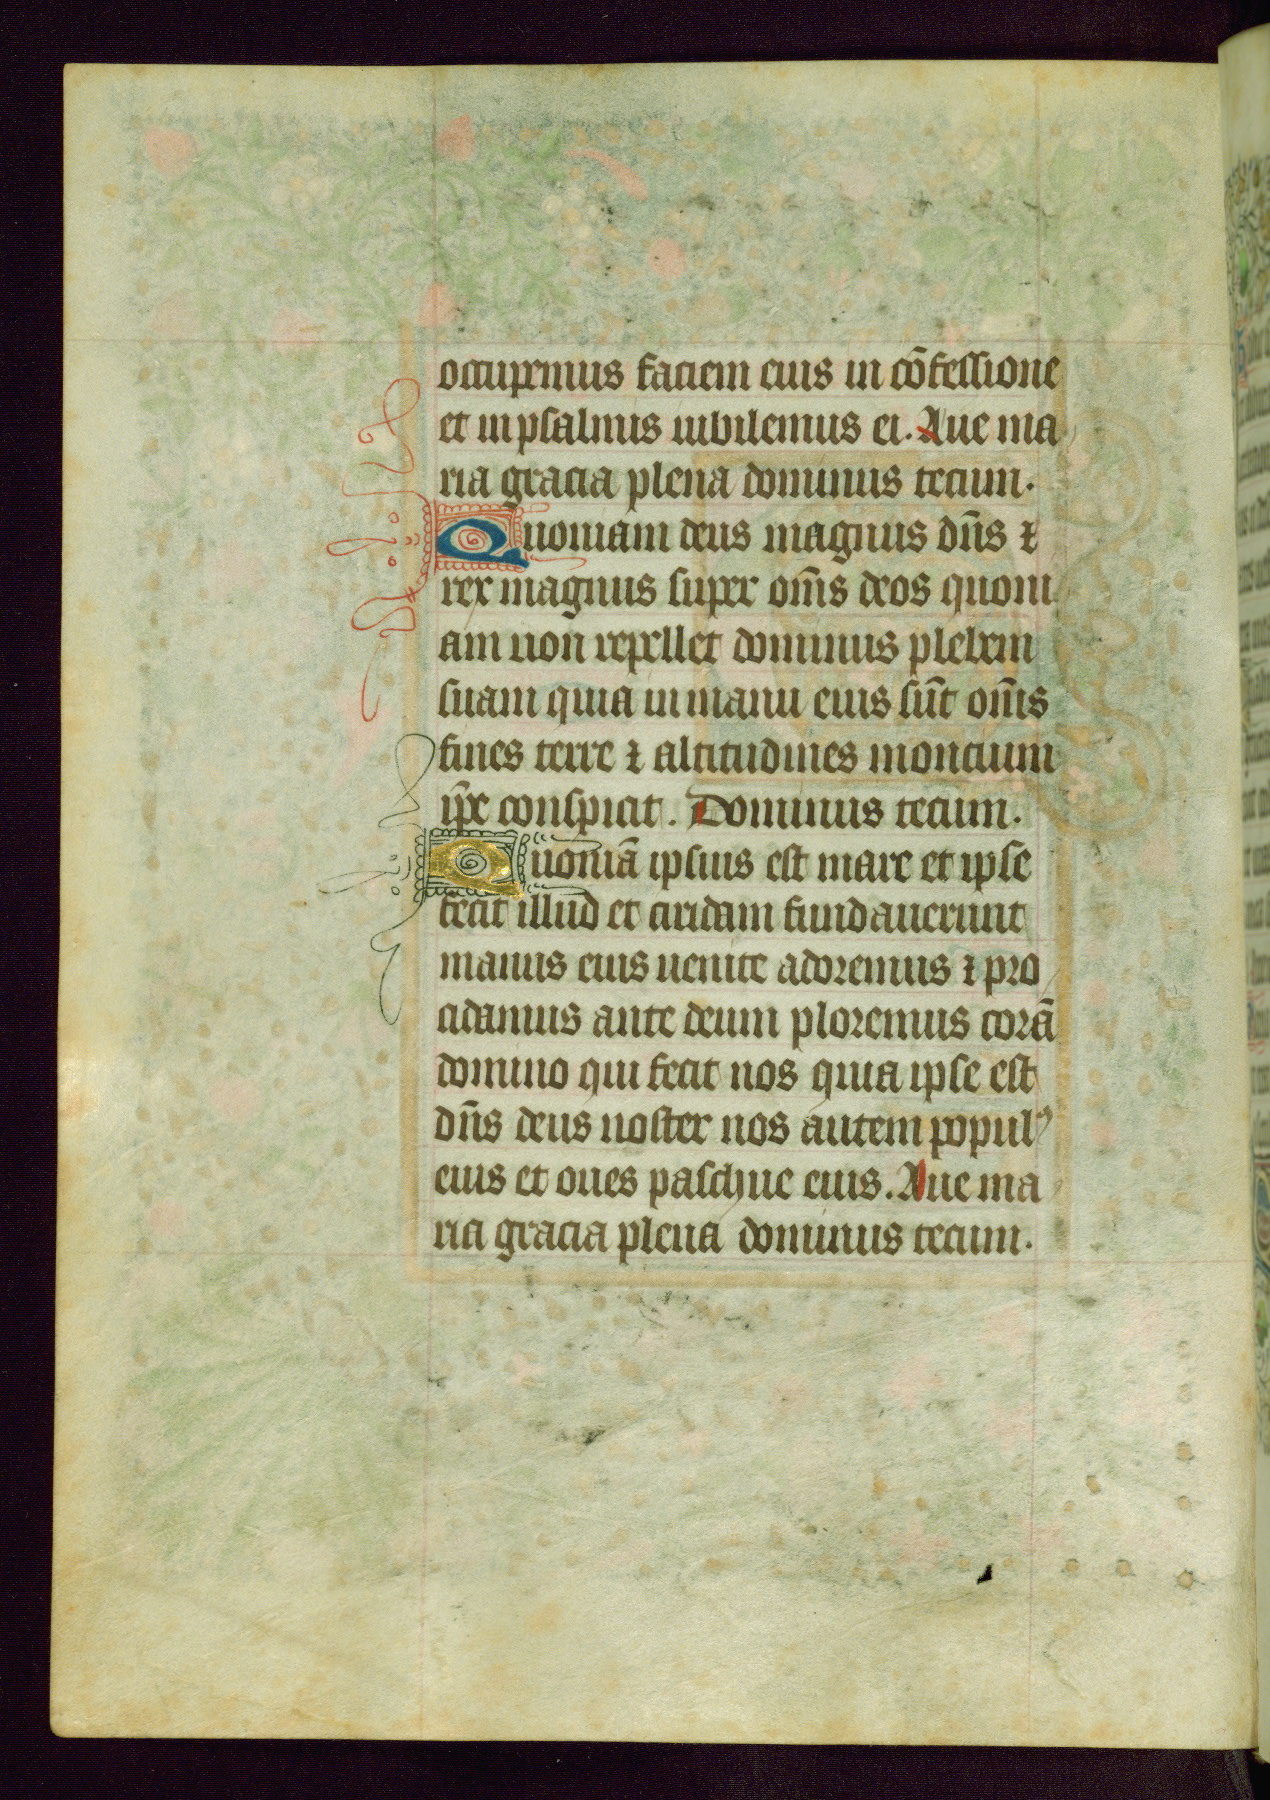 occupemus faciem eius in cōfessione
et in psalmis iubilemus ei. Aue ma
ria gracia plena dominus tecum.
Quoniam deus magnus dn̄s ⁊
rex magnus super om̄s deos quoni
am non repellet dominus plebem
suam quia in manu eius sūt om̄s
fines terre ⁊ altitudines moncium
ip̄e conspicit. Dominus tecum.
Quoniā ipsius est mare et ipse
fecit illud et aridam fundauerunt
manus eius uenite adoremus ⁊ pro
cidamus ante deum ploremus corā
domino qui fecit nos quia ipse est
dn̄s deus noster nos autem popul⁹
eius et oues paschue eius. Aue ma
ria gracia plena dominus tecum.